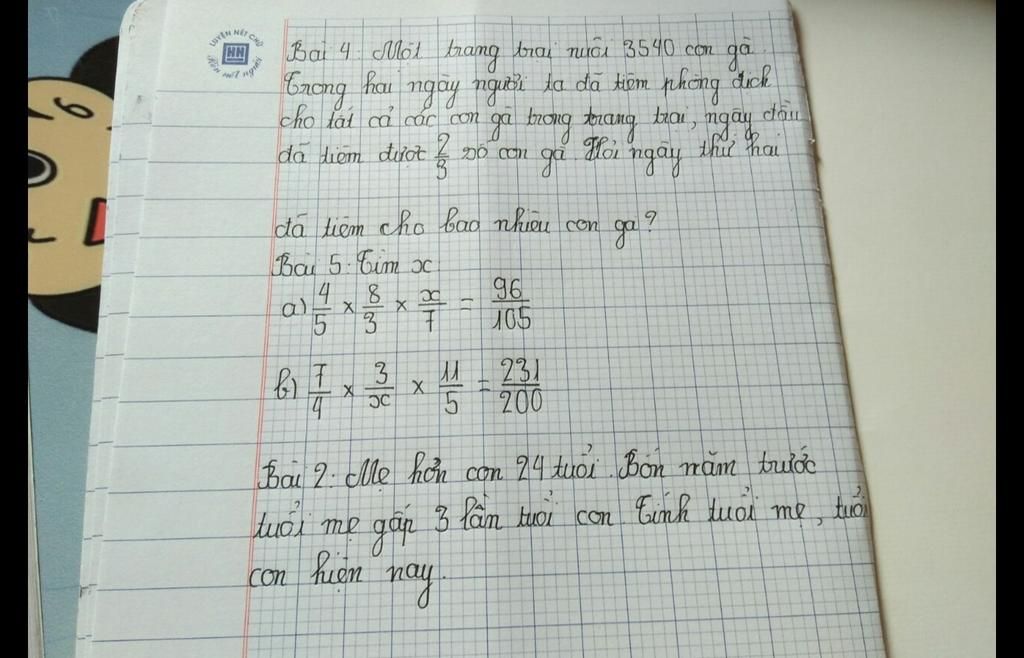 LUYỆN NÉT CHỮ
NN
Rèn nết người
Bài 4: Một trang trại nuôi 3540 con gà.
Trong hai ngày người ta đã tiêm phòng dịch
cho tất cả các con gà trong trang trại, ngày đầu
đã tiêm được 2/3 số con gà Hỏi ngày thứ hai
đã tiêm cho bao nhiêu con gà?
Bài 5: Tìm x
a) 4/5 × 8/3 × x/7 = 96/105
b) 7/4 × 3/x × 11/5 = 231/200
Bài 2: Mẹ hơn con 24 tuổi. Bốn năm trước
tuổi mẹ gấp 3 lần tuổi con. Tính tuổi mẹ, tuổi
con hiện nay.